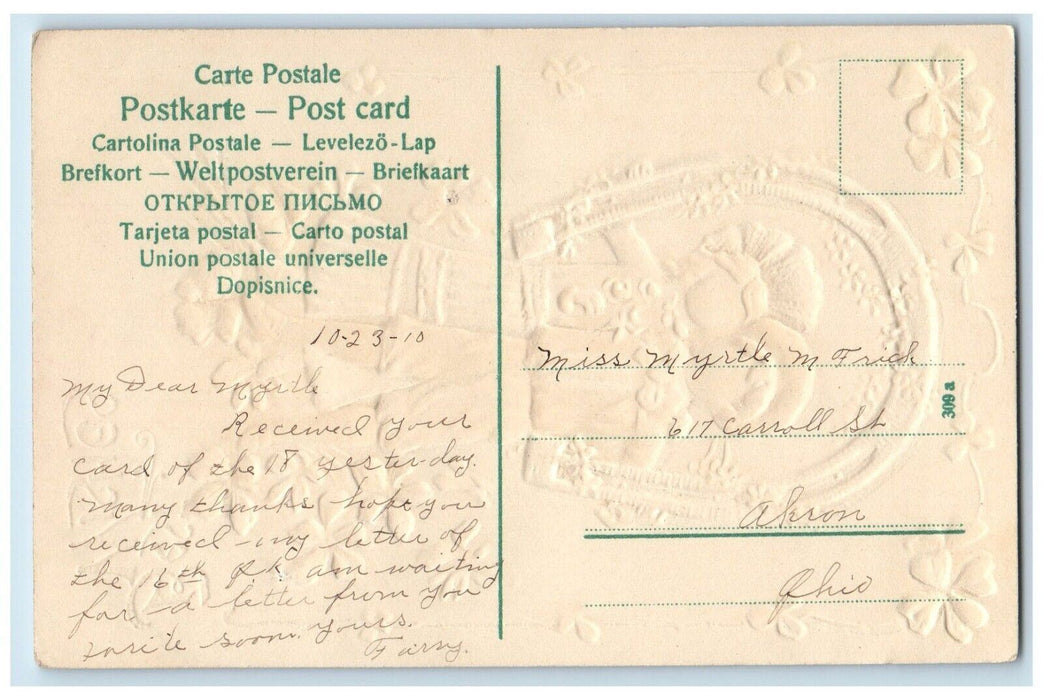 Carte Postale
Postkarte — Post card
Cartolina Postale — Levelezö-Lap
Brefkort — Weltpostverein — Briefkaart
ОТКРЫТОЕ ПИСЬМО
Tarjeta postal — Carto postal
Union postale universelle
Dopisnice.
10-23-10
My Dear Myrtle
Received your
card of the 18 yester-day.
Many thanks hope you
received my letter of
the 16th O.K. am waiting
for a letter from you
write soon. yours.
Miss Myrtle M Frick
617 Carroll St
Akron
Ohio
309 a